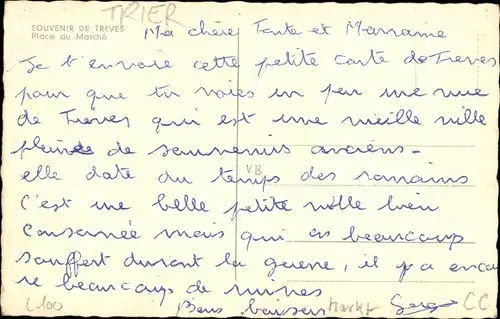 TRIER
SOUVENIR DE TREVES
Place du Marché
Ma chère Tante et Marraine
Je t'envoie cette petite carte de Treves
pour que tu voies un peu une vue
de Trèves qui est une vieille ville
pleine de souvenirs anciens-
elle date du temps des romains
VB
C'est une belle petite ville bien
conservée mais qui a beaucoup
souffert durant la guerre, il y a enco
re beaucoup de ruines
L100
Bons baisers
Markt
Serge
CC